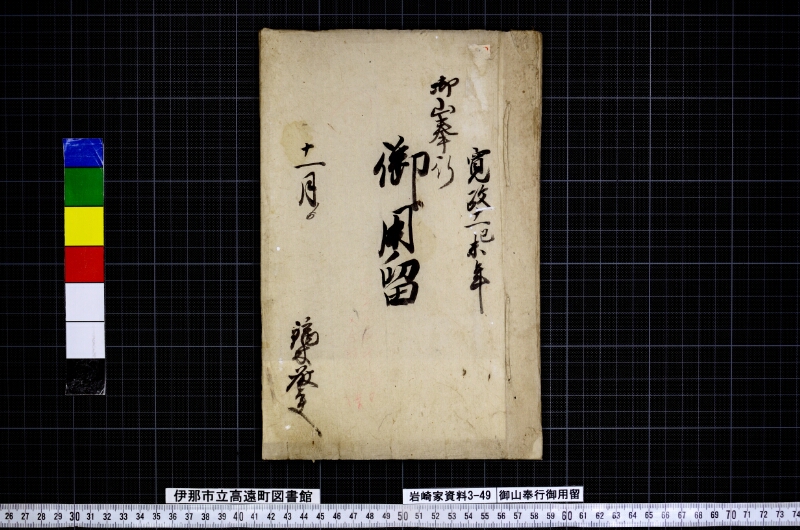 寛政十一己未年
御山奉行
御用留
十一月ゟ
伊那市立高遠町図書館
岩崎家資料3-49
御山奉行御用留
26 27 28 29 30 31 32 33 34 35 36 37 38 39 40 41 42 43 44 45 46 47 48 49 50 51 52 53 54 55 56 57 58 59 60 61 62 63 64 65 66 67 68 69 70 71 72 73 74